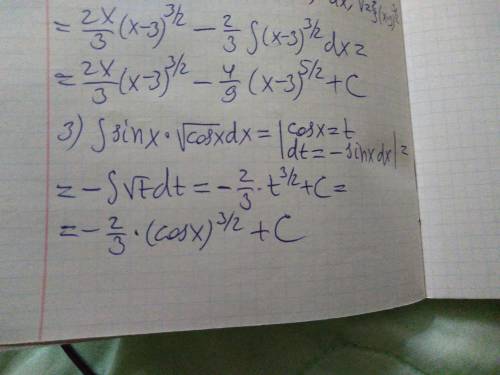 = 2x/3 (x-3)^3/2 - 2/3 ∫(x-3)^3/2 dx =
= 2x/3 (x-3)^3/2 - 4/9 (x-3)^5/2 + C
3) ∫ sinx · √cosx dx = | cosx = t
dt = -sinx dx | =
= - ∫√t dt = - 2/3 · t^3/2 + C =
= - 2/3 · (cosx)^3/2 + C